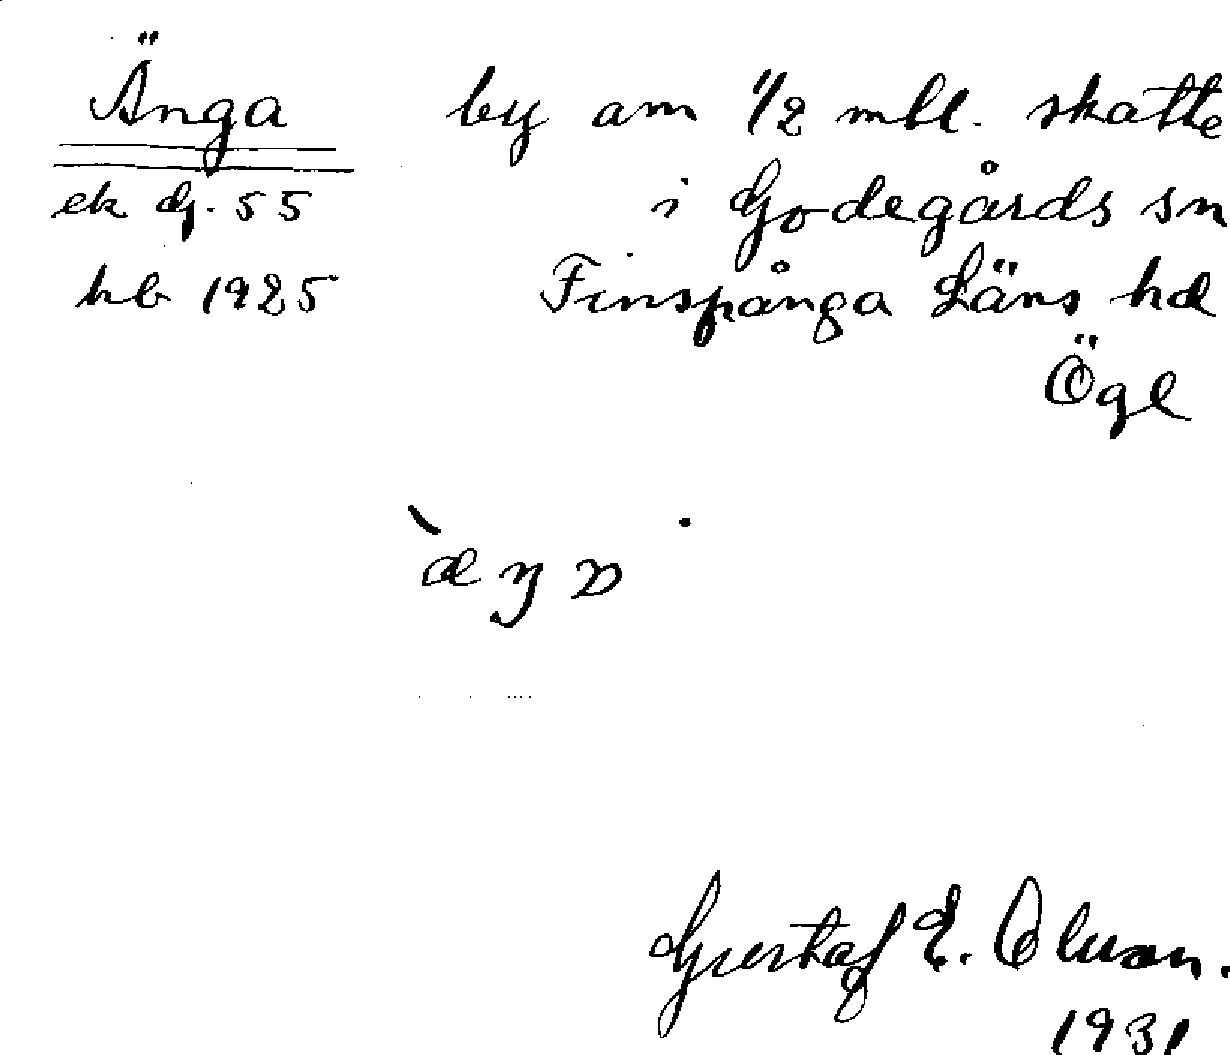 Änga by om 1/2 mtl. skatte
ek Gg. 55 i Godegårds sn
hb 1925 Finspånga Läns hd
Ögl
Gustaf E. Olsson.
1931